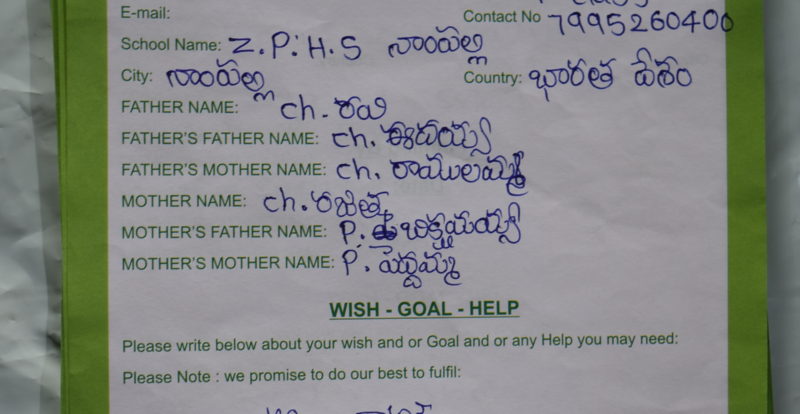 E-mail:
Contact No 7995260400
School Name: Z.P.H.S నాంపల్లి
City: నాంపల్లి Country: భారత దేశం
FATHER NAME: ch. రవి
FATHER'S FATHER NAME: ch. ఈదయ్య
FATHER'S MOTHER NAME: ch. రాములమ్మ
MOTHER NAME: ch. రజిత
MOTHER'S FATHER NAME: P. బిక్షమయ్య
MOTHER'S MOTHER NAME: P. పెద్దమ్మ
WISH - GOAL - HELP
Please write below about your wish and or Goal and or any Help you may need:
Please Note : we promise to do our best to fulfil: